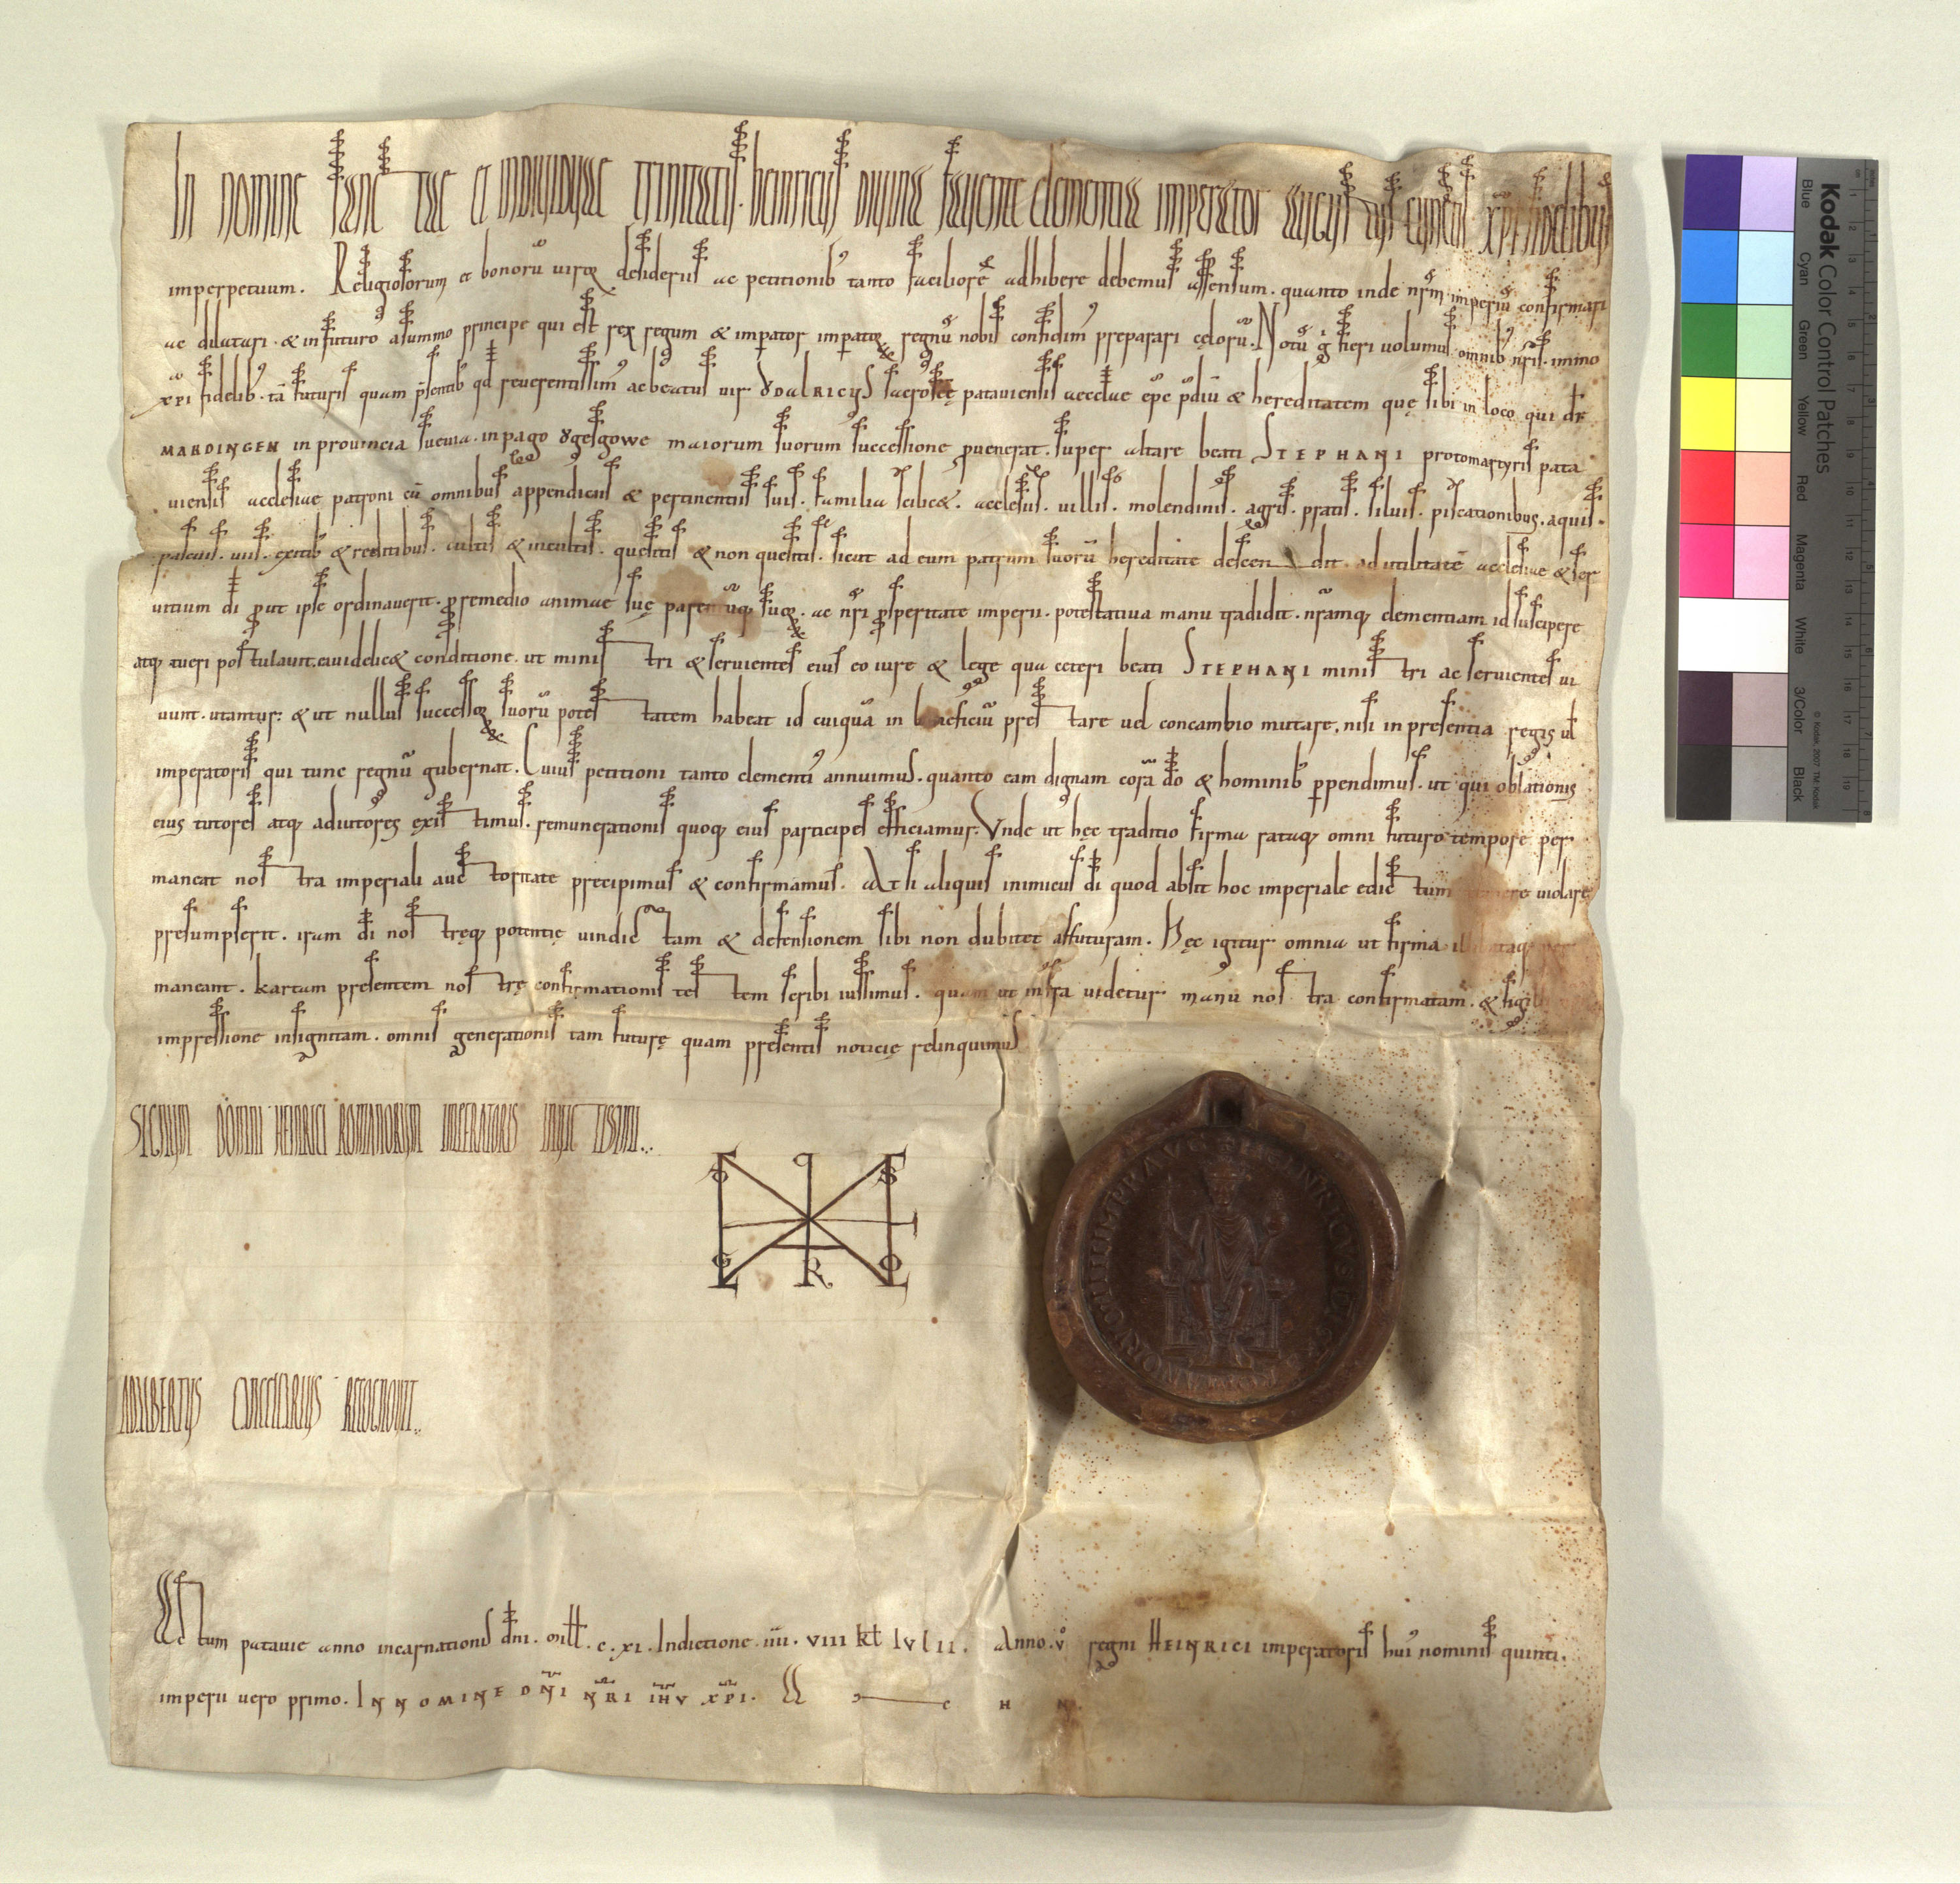 In nomine sanctae et indiuiduae trinitatis. heinricus diuina fauente clementia imperator augustus cunctis xp̄i fidelibus
imperpetuum. Religiosorum et bonorū uiroꝝ desideriis ac petitionib᾿ tanto faciliorē adhibere debemus assensum. quanto inde nr̄m imperiū confirmari
ac dilatari. & infuturo asummo principe qui est rex regum & imꝑator imꝑatoꝝ regnū nobis confidim᾿ preparari cęlorū. Notū g̊ fieri uolumus omnib᾿ nr̄is. immo
xp̄i fidelib᾿. tā futuris quam p̄sentib᾿ qd̄ reuerentissim᾿ ac beatus uir OVDALRICVS sacrosc̄ę patauiensis aecclae ep̄c p̄diū & hereditatem quę sibi in loco qui dr̄
MARDINGEN in prouincia sueuia. in pago gowe maiorum suorum successione ꝑuenerat. super altare beati STEPHANI protomartyris pata
uiensis aecclesiae patroni cū omnibus appendiciis & pertinentiis suis. familia scilic&. aecclesiis. uillis. molendinis. agris. pratis. siluis. piscationibus. aquis.
pascuis. uiis. exitib᾿ & reditibus. cultis & incultis. quesitis & non quesitis. sicut ad eum patrum suorū hereditate descendit. ad utilitatē aecclesiae & ser
uitium dī ꝓut ipse ordinauerit. ꝓ remedio animae suę parentūq; suoꝝ. ac nr̄i ꝓsperitate imperii. potestatiua manu tradidit. nr̄amq; clementiam id suscipere
atq; tueri postulauit. ea uidelic& conditione. ut ministri & seruientes eius eo iure & lege qua ceteri beati STEPHANI ministri ac seruientes ui
uunt. utantur: & ut nullus successoꝝ suorū potestatem habeat id cuiquā in beneficiū prestare uel concambio mutare. nisi in presentia regis ul̄
imperatoris qui tunc regnū gubernat. Cuius petitioni tanto clementi᾿ annuimus. quanto eam dignam corā dō & hominib᾿ ꝑpendimus. ut qui oblationis
eius tutores atq; adiutores existimus. remunerationis quoq; eius participes efficiamur. Vnde ut hęc traditio firma rataq; omni futuro tempore per
maneat nostra imperiali auctoritate precipimus & confirmamus. At si aliquis inimicus dī quod absit hoc imperiale edictum uiolare
presumpserit. iram dī nostręq; potentię uindictam & defensionem sibi non dubitet affuturam. Hęc igitur omnia ut firma per
maneant. kartam presentem nostrę confirmationis testem scribi iussimus. quam ut infra uidetur manu nostra confirmatam. & sigilli
impressione insignitam. omnis generationis tam futurę quam presentis noticię relinquimus
SIGNUM DOMNI HEINRICI ROMANORUM IMPERATORIS INVICTISSIMI..
S S G R O
HEINRICVS ROMANORV̄ IIII IMPR AVG
ADALBERTUS CANCELLARIUS RECOGNOVIT..
Actum patauie anno incarnationis dn̄i. mill̄. c. xi. Indictione. iiii. VIII kł IVLII. Anno. v̊ regni HEINRICI imperatoris hui᾿ nominis quinti.
imperii uero primo. IN NOMINE DN̄I NR̄I IHV XP̄I. AMEN
Kodak Color Control Patches
Blue Cyan Green Yellow Red Magenta White 3/Color Black
© Kodak, 2007 TM: Kodak